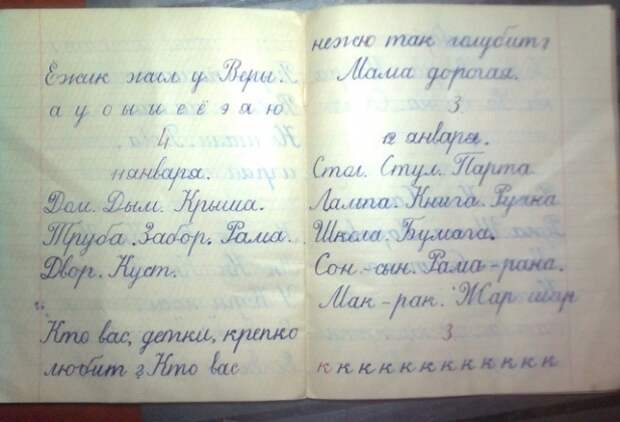 Ежик жил у Веры.
а у о ы и е ё э я ю
4
января.
Дом. Дым. Крыша.
Труба. Забор. Рама.
Двор. Куст.
Кто вас, детки, крепко
любит ? Кто вас
нежно так голубит ?
Мама дорогая.
3
12 января.
Стол. Стул. Парта
Лампа. Книга. Ручка
Школа. Бумага.
Сон - сын. Рама - рана.
Мак - рак. Жар шар
3
к к к к к к к к к к к к